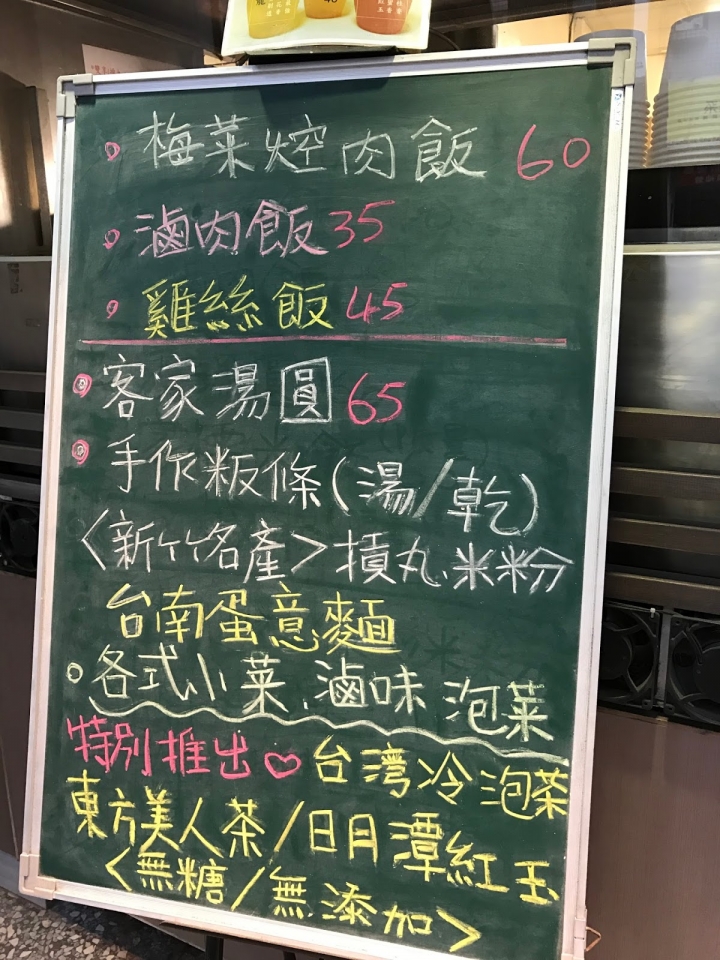 梅菜焢肉飯 60
滷肉飯35
雞絲飯45
客家湯圓65
手作粄條(湯/乾)
<新竹名產>摃丸.米粉
台南蛋意麵
各式小菜.滷味 泡菜
特別推出♡台湾冷泡茶
東方美人茶/日月潭紅玉
<無糖/無添加>